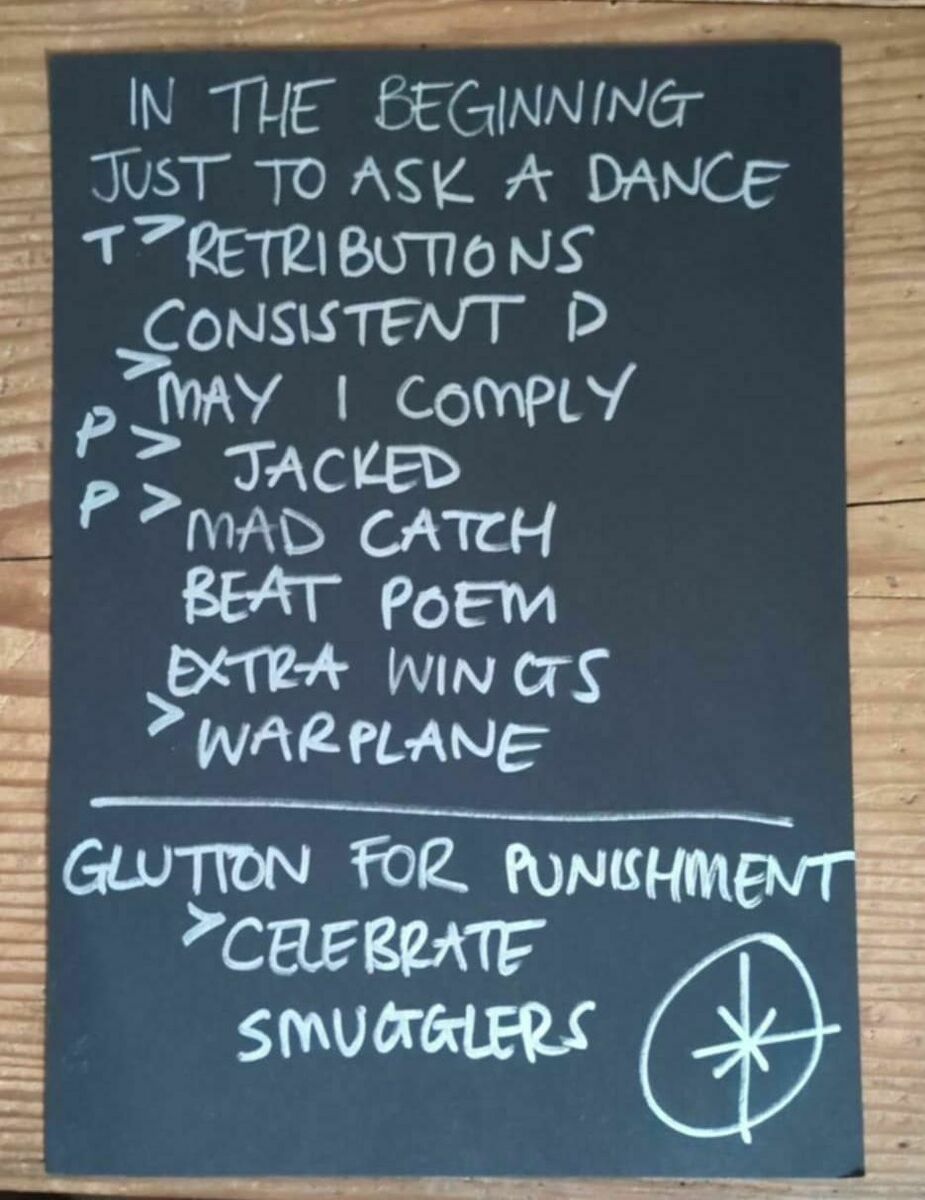 IN THE BEGINNING
JUST TO ASK A DANCE
T > RETRIBUTIONS
CONSISTENT D
> MAY I COMPLY
P > JACKED
P > MAD CATCH
BEAT POEM
EXTRA WINGS
> WARPLANE
GLUTTON FOR PUNISHMENT
> CELEBRATE
SMUGGLERS